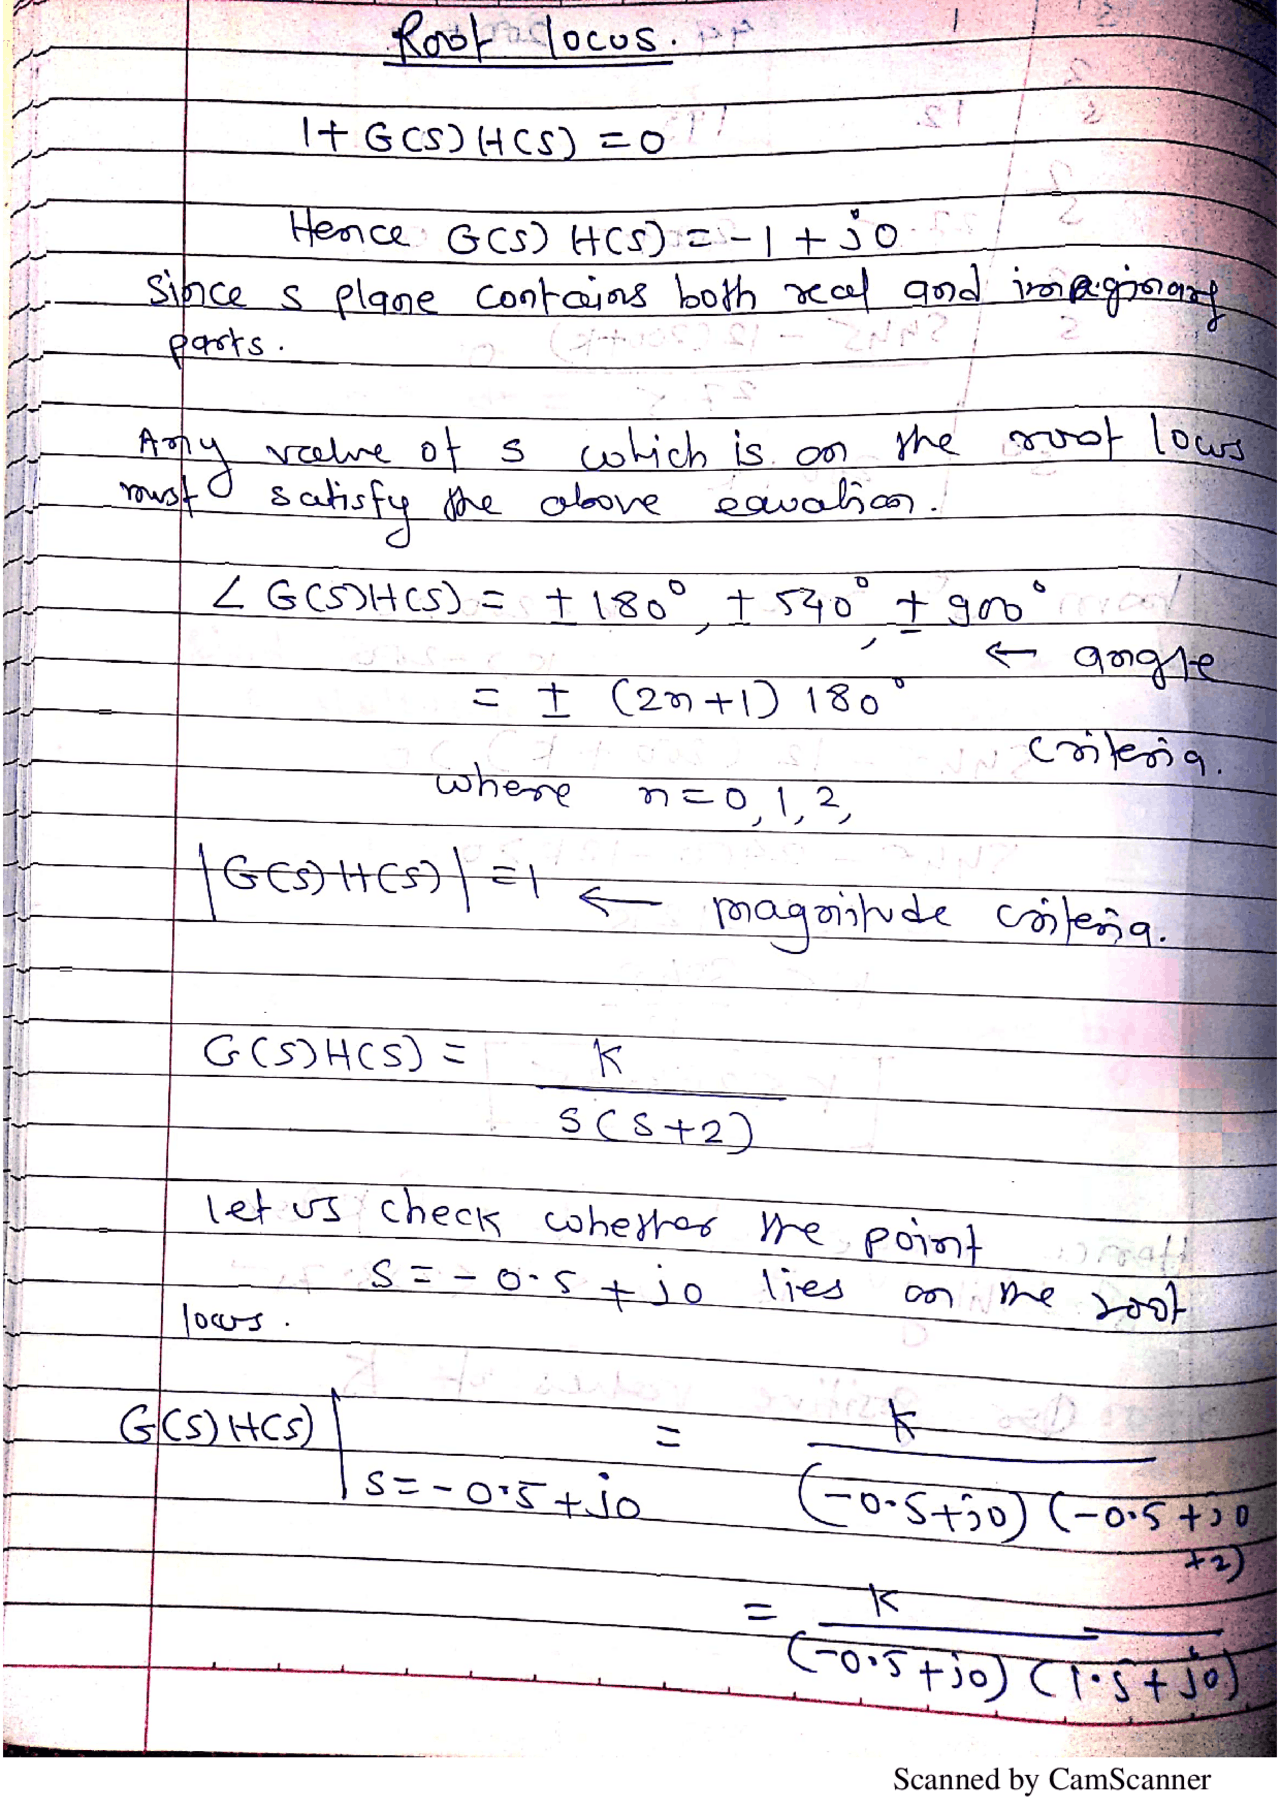 Root locus.
1+ G(S) H(S) = 0
Hence G(S) H(S) = -1 + j0
Since s plane contains both real and imaginary
parts.
Any value of s which is on the root locus
must satisfy the above equation.
∠ G(S)H(S) = ± 180°, ± 540°, ± 900°
← angle
= ± (2n+1) 180°
criteria.
where n=0,1,2,
|G(S) H(S)| = 1 ← magnitude criteria.
G(S)H(S) = K
S(S+2)
let us check whether the point
S = -0.5 + j0 lies on the root
locus.
G(S) H(S)| = K
S = -0.5 + j0 (-0.5+j0) (-0.5+j0
+2)
= K
(-0.5+j0) (1.5+j0)
Scanned by CamScanner